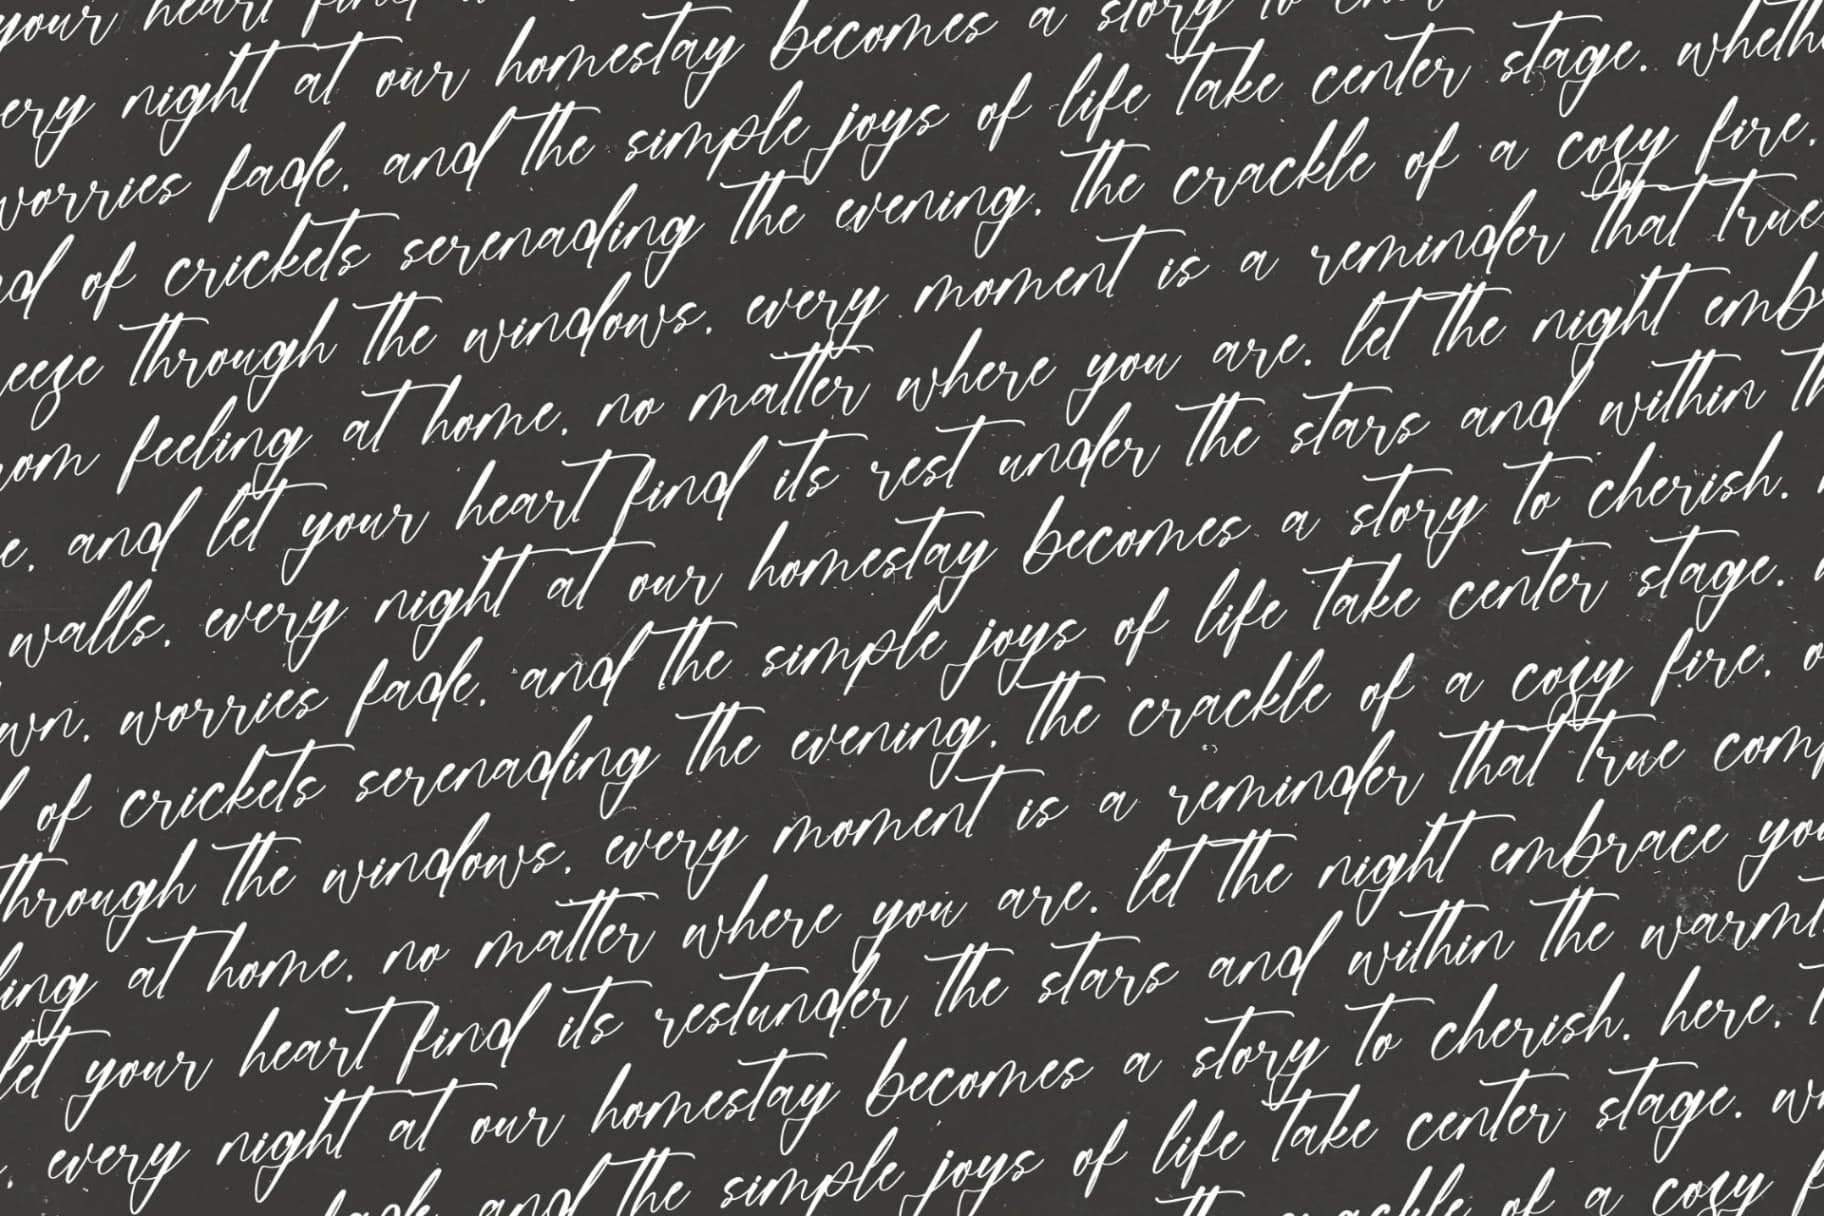 your heart find
every night at our homestay becomes a story to
worries fade, and the simple joys of life take center stage. wheth
of crickets serenading the evening, the crackle of a cozy fire,
through the windows, every moment is a reminder that true
feeling at home, no matter where you are. let the night embr
e, and let your heart find its rest under the stars and within th
walls, every night at our homestay becomes a story to cherish.
wn, worries fade, and the simple joys of life take center stage.
of crickets serenading the evening, the crackle of a cozy fire, o
through the windows, every moment is a reminder that true com
ling at home, no matter where you are. let the night embrace you
let your heart find its restunder the stars and within the warmt
, every night at our homestay becomes a story to cherish. here, t
fade, and the simple joys of life take center stage. wh
the crackle of a cozy f